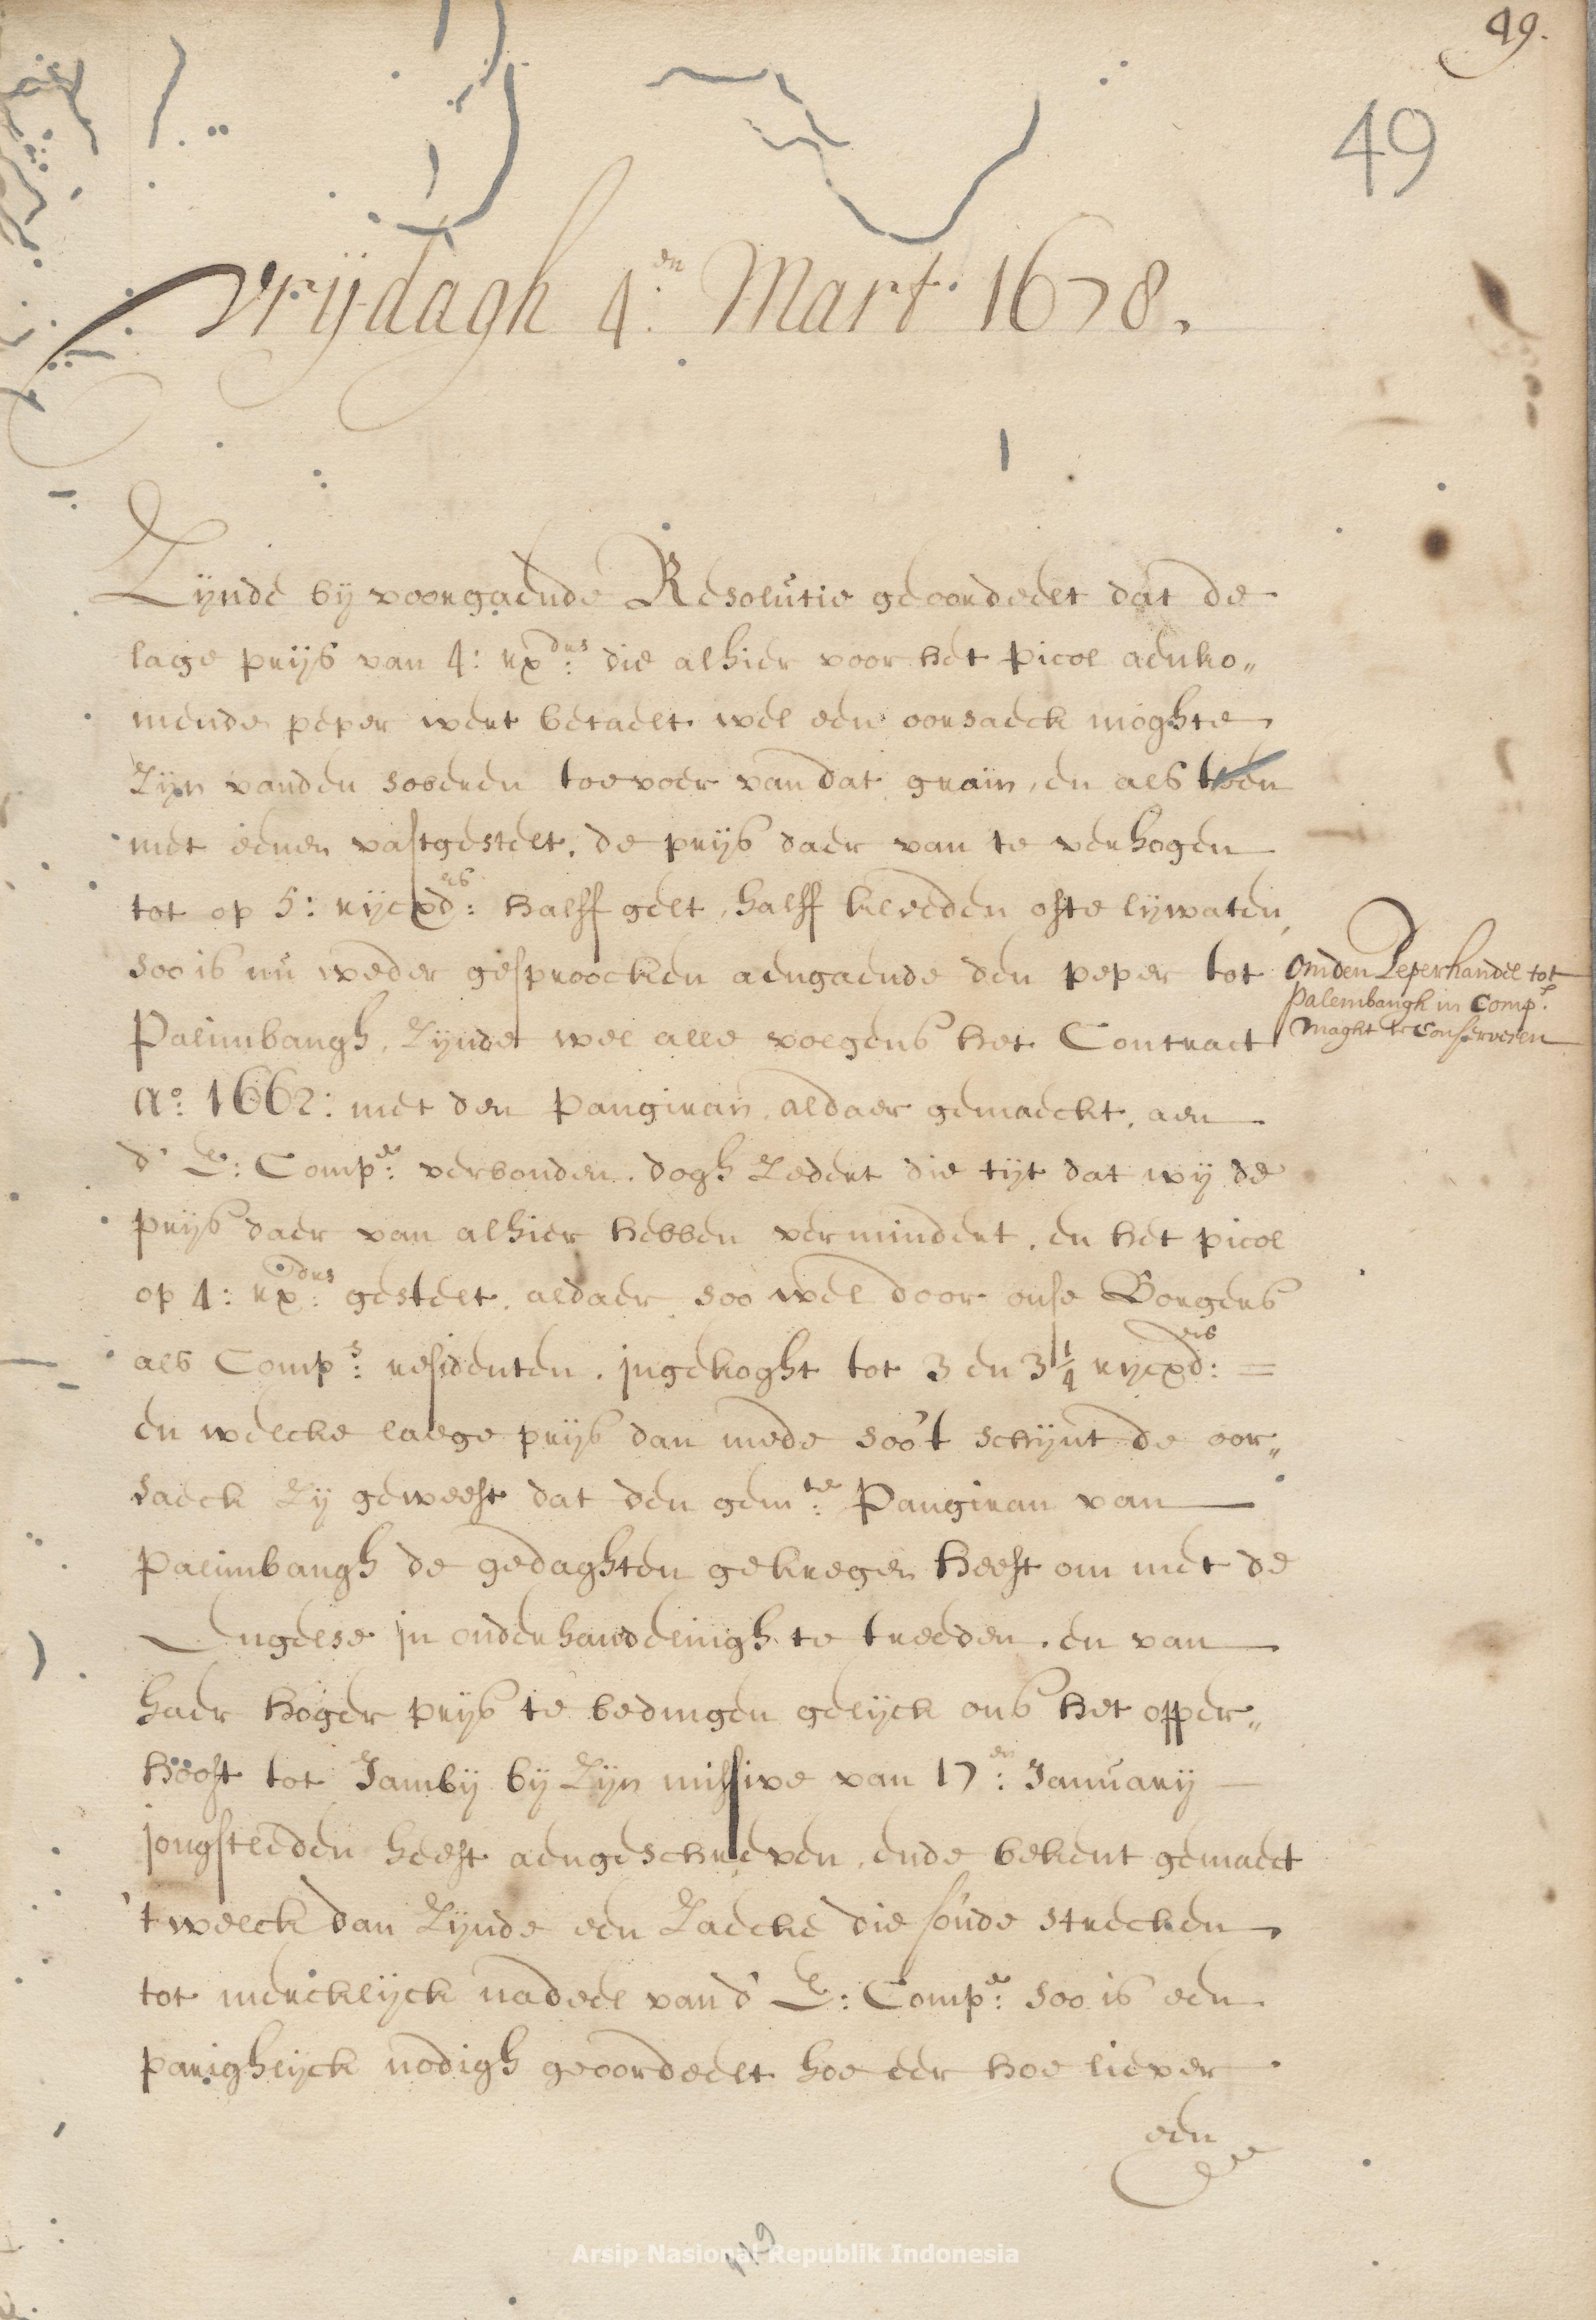 49.
49
Vrijdagh 4.en Mart. 1678.
Zijnde bij voorgaende Resolutie geoordeelt dat de
lage prijs van 4: rxdrs: die alhier voor het picol aenko„
mende peper wert betaelt wel een oorsaeck moghte
Zijn vanden soberen toevoer van dat grain, en als toen
met eenen vastgestelt, de prijs daer van te verhogen
tot op 5: rijcxdrs: halff gelt, halff kleeden ofte lijwaten,
soo is nu weder gesproocken aengaende den peper tot
Palimbangh, Zijnde wel alle volgens het Contract
Ao: 1662: met den Pangiran, aldaer gemaeckt, aen
d' E: Compe: verbonden. dogh Zedert die tijt dat wij de
prijs daer van alhier hebben vermindert, en het picol
op 4: rxdrs: gestelt, aldaer soo wel door onse Borgers
als Comps: residenten, jngekoght tot 3 en 3 1/4 rijcxdrs: =
en welcke laege prijs dan mede soo't schijnt de oor„
saeck Zij geweest dat den gemte: Pangiran van
Palimbangh de gedaghten gekregen heeft om met de
Engelse jn onderhandelingh te treeden, en van
haer hoger prijs te bedingen gelijck ons het opper„
hooft tot Jambij bij Zijn missive van 17en: Januarij
jongstleden heeft aengeschreven, ende bekent gemaect
't welck dan Zijnde een Zaecke die soude strecken
tot mercklijck nadeel van d' E: Compe: soo is een
parighlijck nodigh geoordeelt hoe eer hoe liever
een
Om den Peperhandel tot
Palembangh in Comps.
maght te Conserveren
Arsip Nasional Republik Indonesia